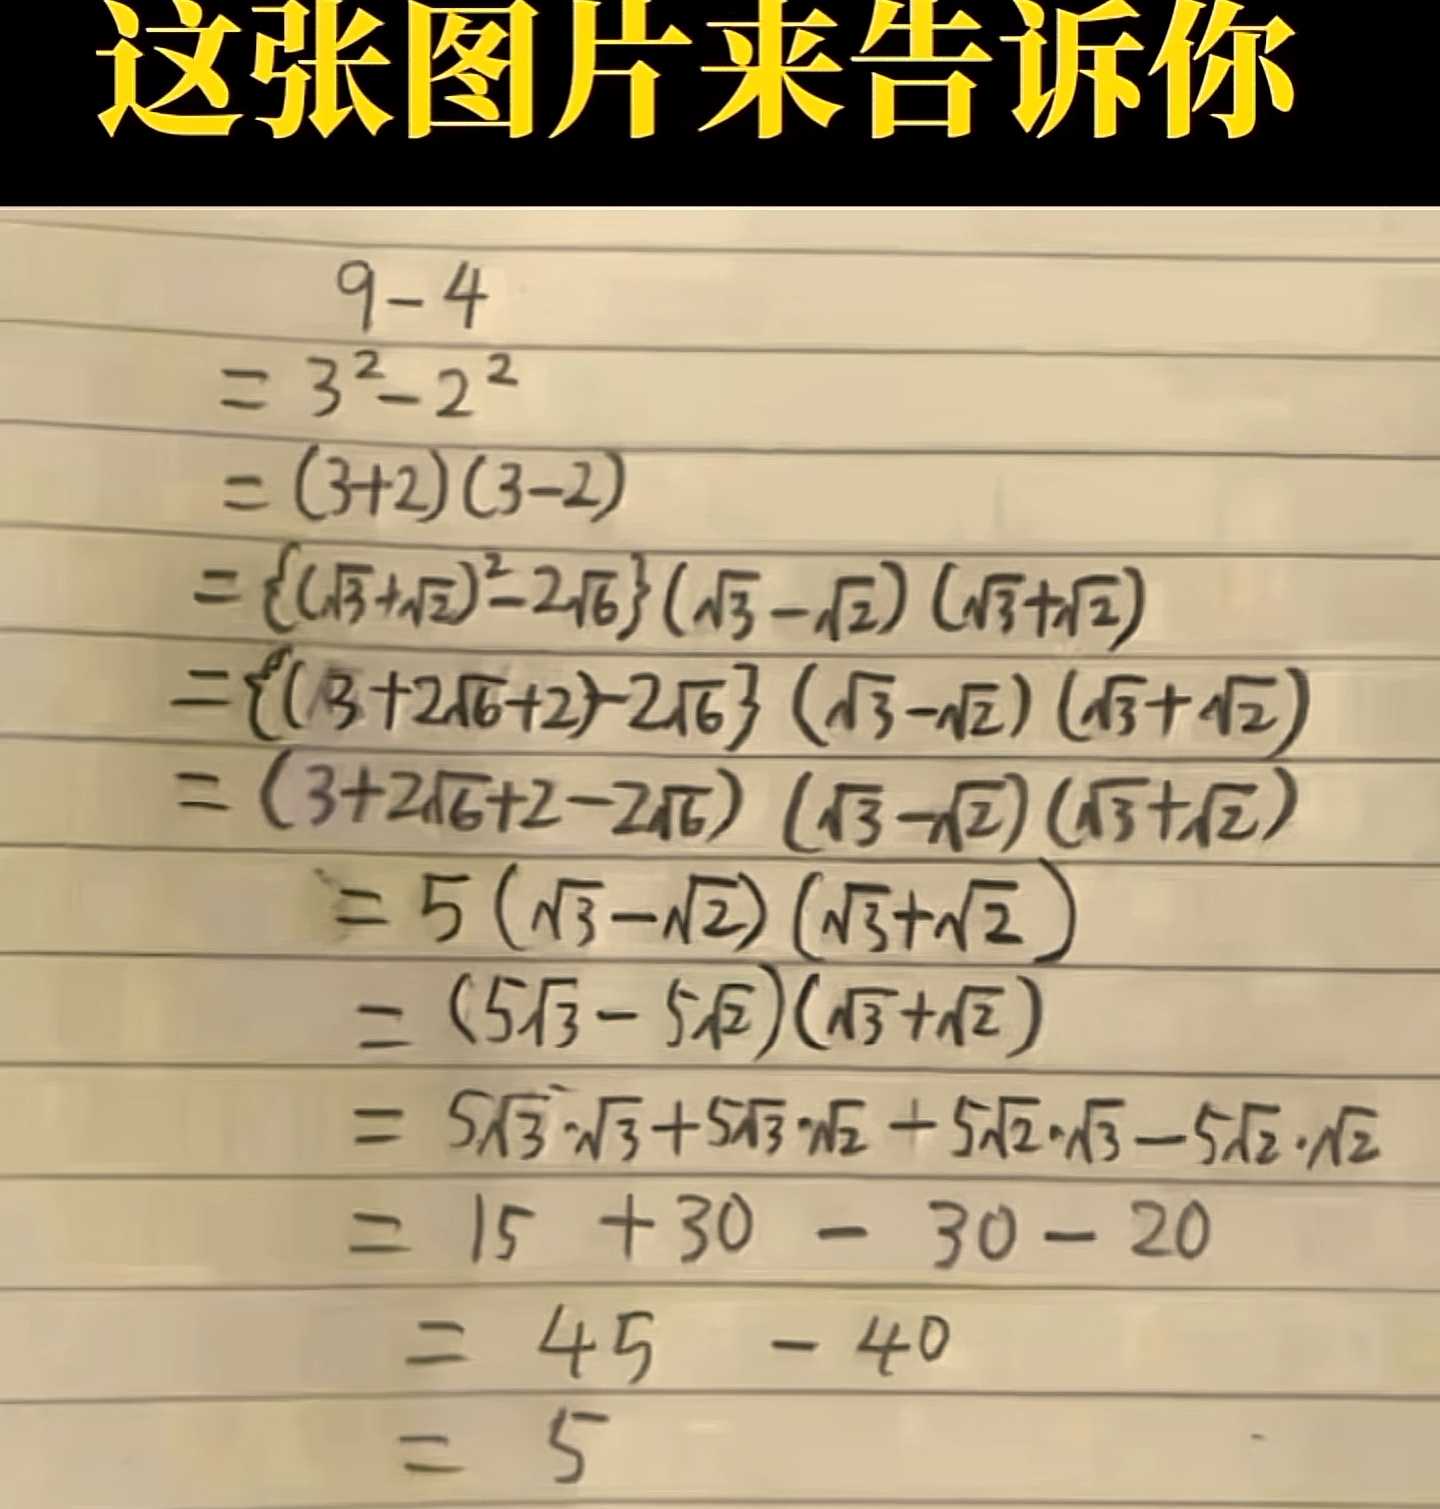 这张图片来告诉你
9-4
= 3²-2²
= (3+2)(3-2)
= {(√3+√2)²-2√6}(√3-√2)(√3+√2)
= {(3+2√6+2)-2√6}(√3-√2)(√3+√2)
= (3+2√6+2-2√6)(√3-√2)(√3+√2)
= 5(√3-√2)(√3+√2)
= (5√3-5√2)(√3+√2)
= 5√3·√3+5√3·√2+5√2·√3-5√2·√2
= 15 +30 - 30-20
= 45 -40
= 5